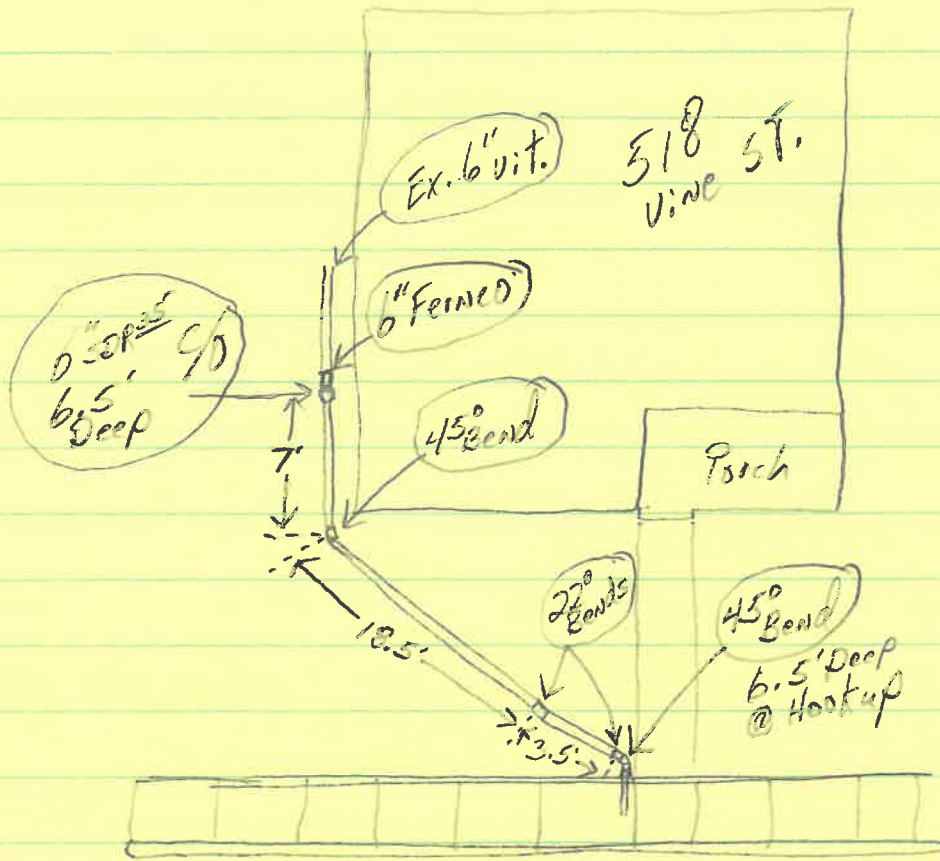 518
Vine ST.
Ex. 6" vit.
6" Fernco
6" SDR35 C/O
6.5'
Deep
7'
45° Bend
Porch
18.5'
22° Bends
3.5'
45° Bend
6.5' Deep
@ Hookup